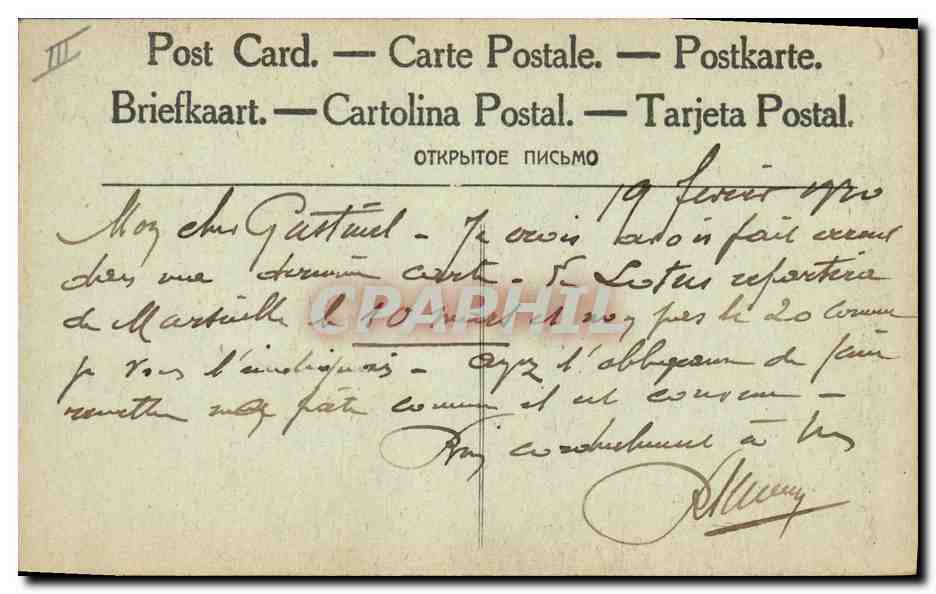 III
Post Card. — Carte Postale. — Postkarte.
Briefkaart. — Cartolina Postal. — Tarjeta Postal.
ОТКРЫТОЕ ПИСЬМО
19 février 1920
Mon cher - Je crois avoir fait erreur
dans ma dernière carte - Le Lotus repartira
de Marseille le 10 mars et non pas le 20 comme
je vous l'indiquais - ayez l'obligeance de faire
remettre comme il est convenu -
Bien cordialement à Vs
CPARHIL